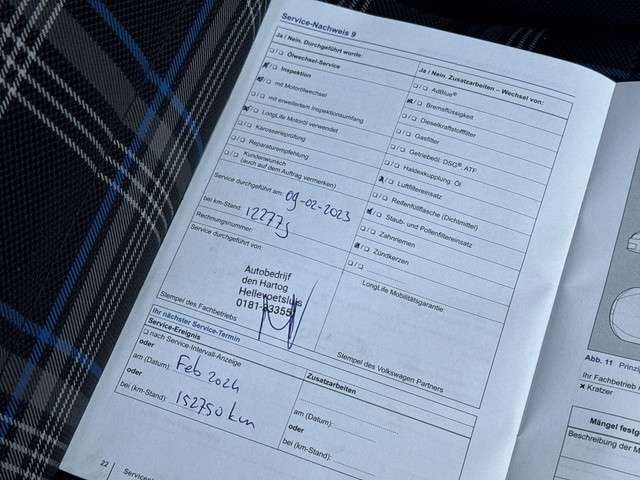 Service-Nachweis 9
Ja / Nein. Durchgeführt wurde:
/ Ölwechsel-Service
/ Inspektion
/ mit Motorölwechsel
/ mit erweitertem Inspektionsumfang
/ LongLife Motoröl verwendet
/ Karosserieprüfung
/ Reparaturempfehlung
/ Kundenwunsch
(auch auf dem Auftrag vermerken)
Service durchgeführt am: 09-02-2023
bei km-Stand:
Rechnungsnummer:
Service durchgeführt von:
Autobedrijf
den Hartog
Hellevoetsluis
Stempel des Fachbetriebs
Ja / Nein. Zusatzarbeiten – Wechsel von:
/ AdBlue®
/ Bremsflüssigkeit
/ Dieselkraftstofffilter
/ Gasfilter
/ Getriebeöl: DSG®, ATF
/ Haldexkupplung: Öl
/ Luftfiltereinsatz
/ Reifenfüllflasche (Dichtmittel)
/ Staub- und Pollenfiltereinsatz
/ Zahnriemen
/ Zündkerzen
/
LongLife Mobilitätsgarantie:
Stempel des Volkswagen Partners
Ihr nächster Service-Termin
Service-Ereignis
nach Service-Intervall-Anzeige
oder
am (Datum): Feb 2024
oder
bei (km-Stand): 152750 km
Zusatzarbeiten
am (Datum):
oder
bei (km-Stand):
22
Abb. 11
Ihr Fachbetrieb
× Kratzer
Mängel
Beschreibung der